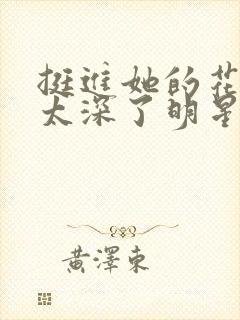 挺进她的花
太深了明星
黄泽东